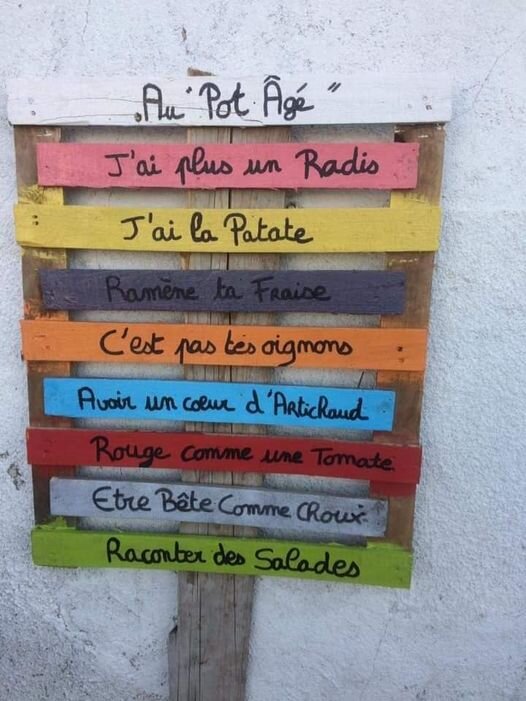 Au "Pot Âgé"
J'ai plus un Radis
J'ai la Patate
Ramène ta Fraise
C'est pas tes oignons
Avoir un cœur d'Artichaud
Rouge comme une Tomate
Etre Bête Comme Choux
Raconter des Salades